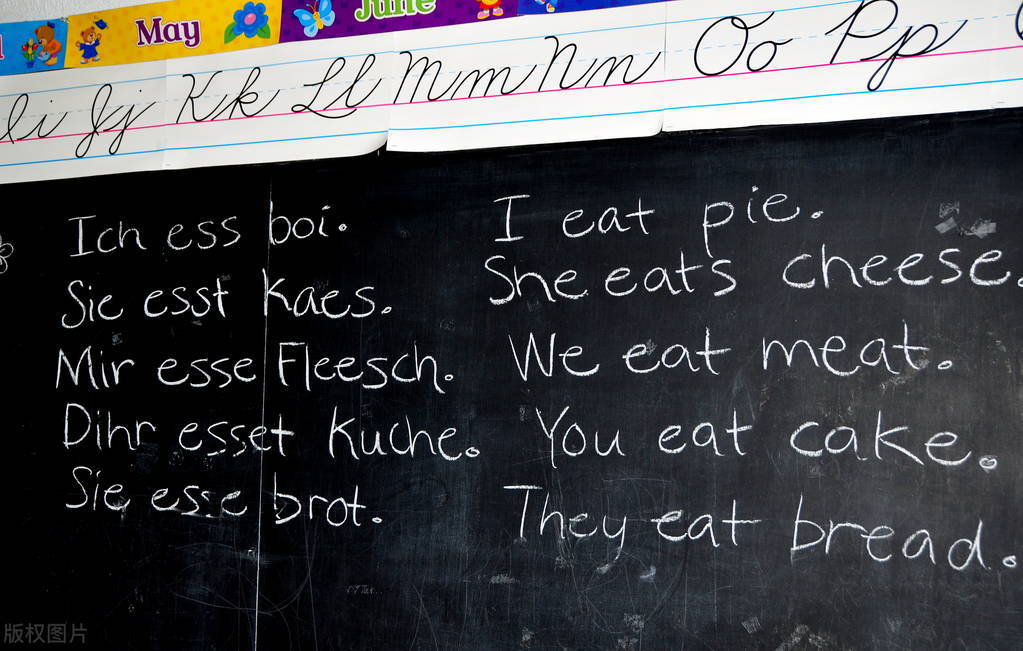 May June
Ii Jj Kk Ll Mm Nn Oo Pp
Ich ess boi.
Sie esst Kaes.
Mir esse Fleesch.
Dihr esset Kuche.
Sie esse brot.
I eat pie.
She eats cheese.
We eat meat.
You eat cake.
They eat bread.
版权图片